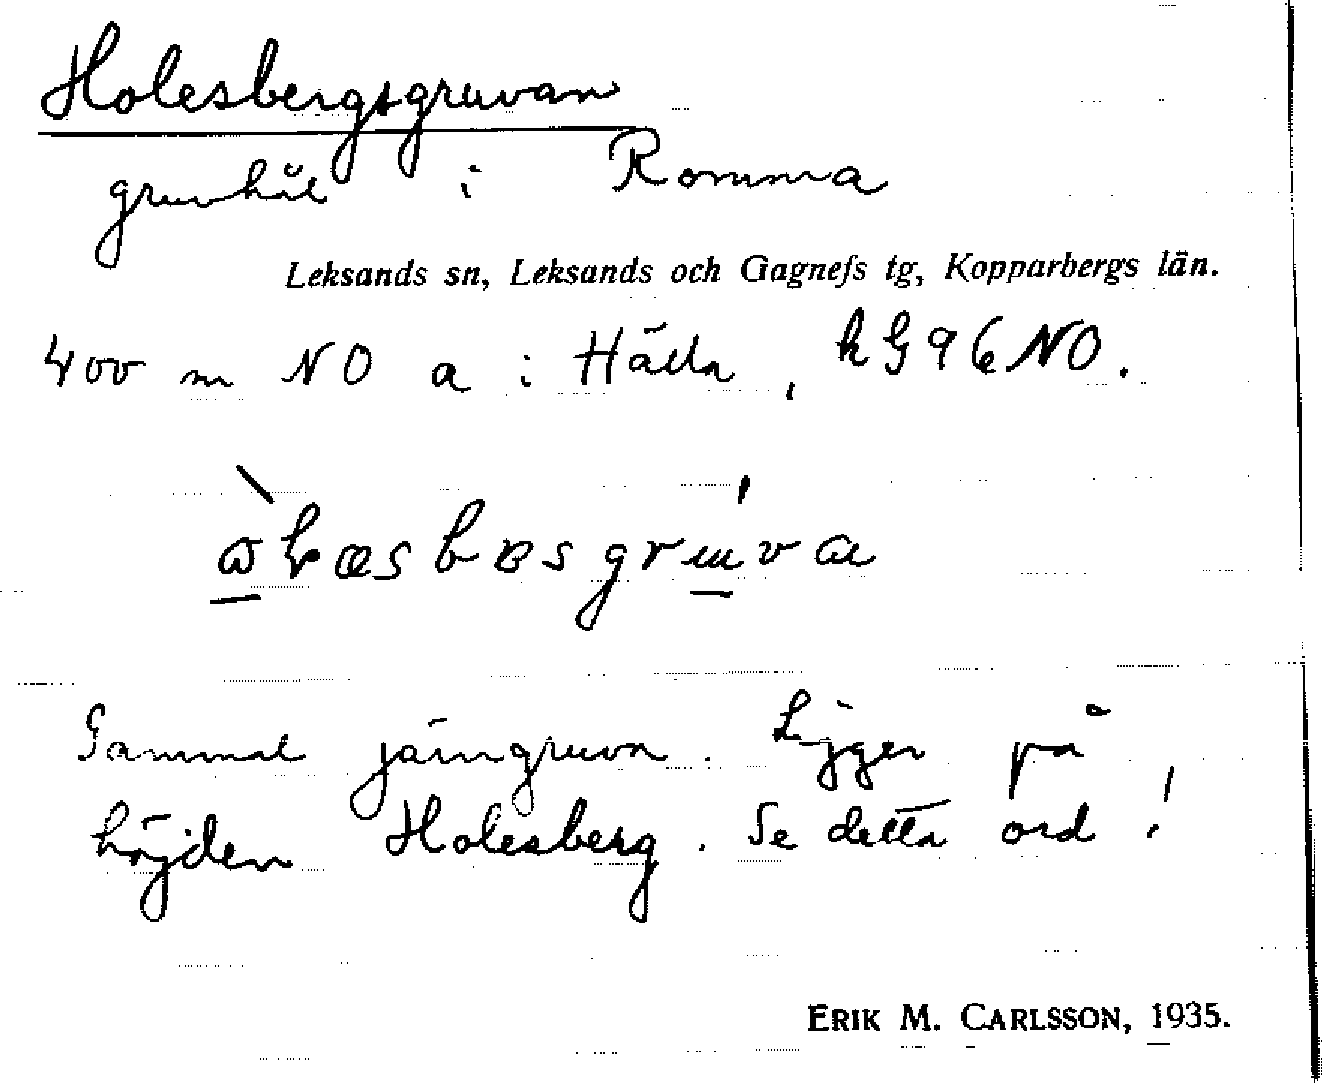 Holesbergsgruvan
gruvhål i Romma
Leksands sn, Leksands och Gagnefs tg, Kopparbergs län.
400 m NO a i Hälla, kG96NO.
Gammal järngruva. Ligger på
höjden Holesberg. Se detta ord!
ERIK M. CARLSSON, 1935.